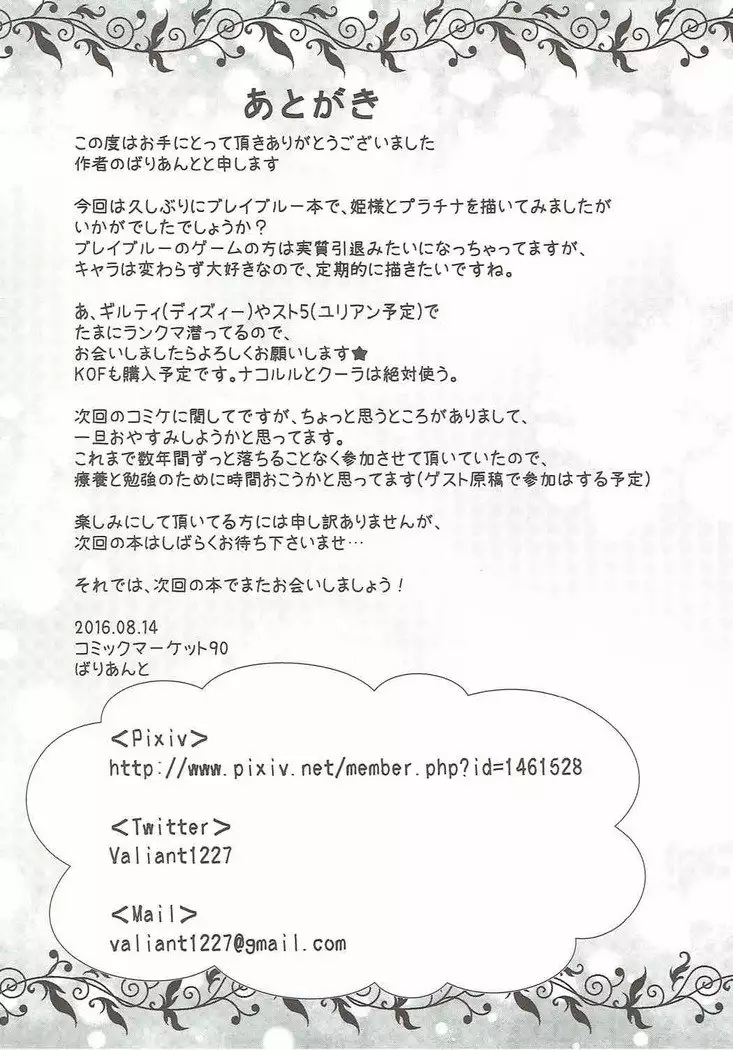 あとがき
この度はお手にとって頂きありがとうございました
作者のばりあんとと申します
今回は久しぶりにブレイブルー本で、姫様とプラチナを描いてみましたが
いかがでしたでしょうか？
ブレイブルーのゲームの方は実質引退みたいになっちゃってますが、
キャラは変わらず大好きなので、定期的に描きたいですね。
あ、ギルティ(ディズィー)やスト5(ユリアン予定)で
たまにランクマ潜ってるので、
お会いしましたらよろしくお願いします★
KOFも購入予定です。ナコルルとクーラは絶対使う。
次回のコミケに関してですが、ちょっと思うところがありまして、
一旦おやすみしようかと思ってます。
これまで数年間ずっと落ちることなく参加させて頂いていたので、
療養と勉強のために時間おこうかと思ってます(ゲスト原稿で参加はする予定)
楽しみにして頂いてる方には申し訳ありませんが、
次回の本はしばらくお待ち下さいませ…
それでは、次回の本でまたお会いしましょう！
2016.08.14
コミックマーケット90
ばりあんと
＜Pixiv＞
http://www.pixiv.net/member.php?id=1461528
＜Twitter＞
Valiant1227
＜Mail＞
valiant1227@gmail.com